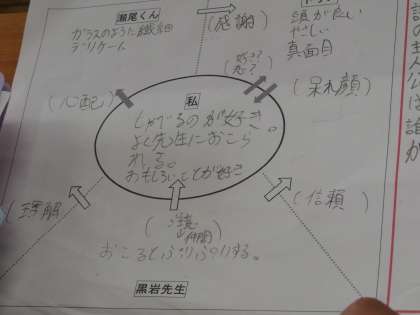 瀬尾くん
ガラスのように繊細
デリケート
(感謝)
頭がたかい
やさしい
真面目
(呆れ顔)
(心配)
私
しゃべるのが好き。
よく先生におこら
れる。
おもしろいことが好き
(理解)
(信頼)
仲間
おこるとぷりぷりする。
黒岩先生